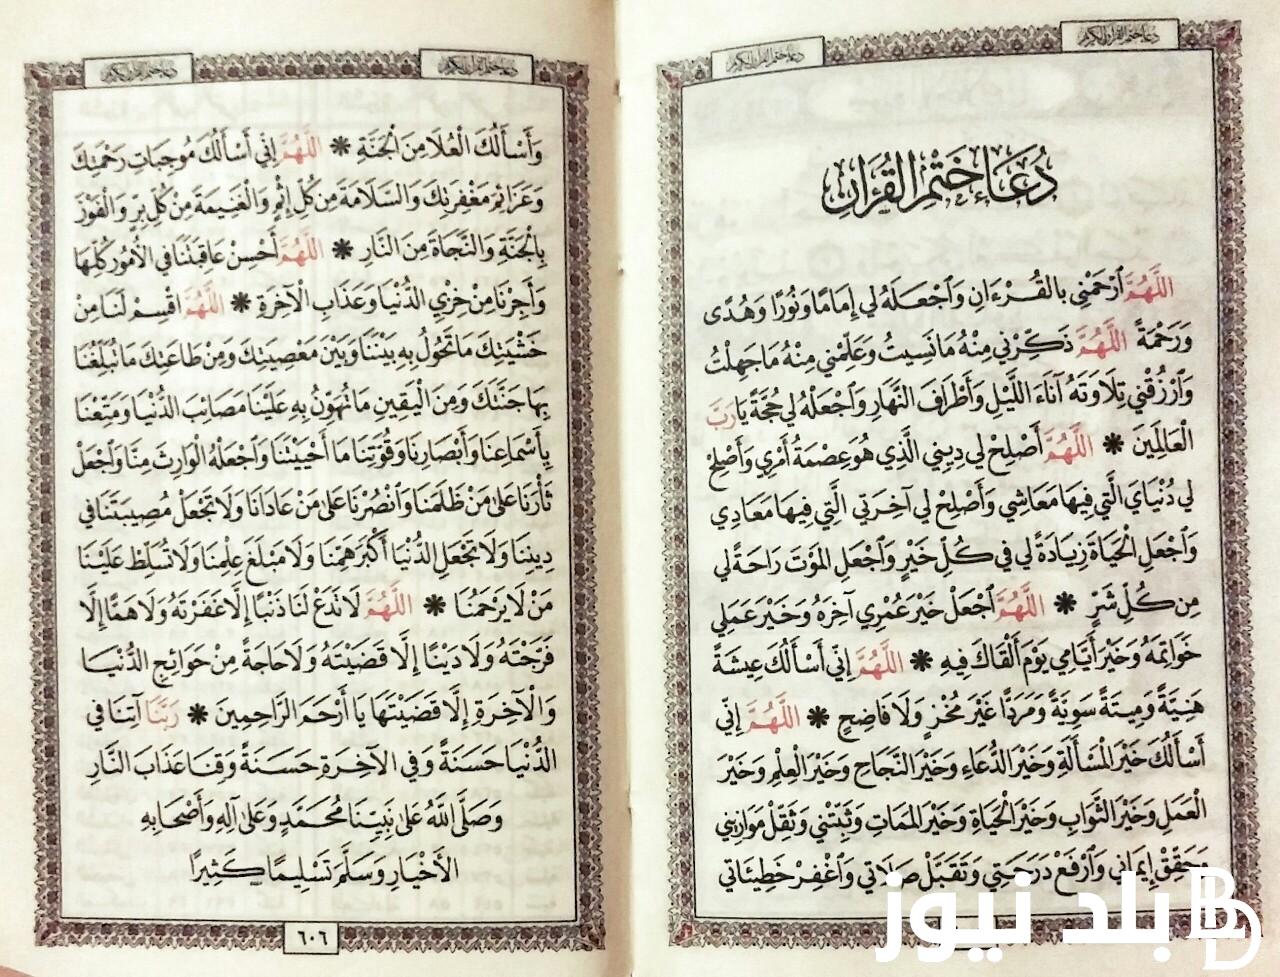 دعاء ختم القرآن الكريم
دعاء ختم القرآن الكريم
دُعَاءُ خَتْمِ القُرْآنِ
اللَّهُمَّ ٱرْحَمْنِي بالقُرْءَانِ وَٱجْعَلهُ لي إِمَامًا وَنُورًا وَهُدًى
وَرَحْمَةً اللَّهُمَّ ذَكِّرْنِي مِنْهُ مَانَسِيتُ وَعَلِّمْنِي مِنْهُ مَاجَهِلْتُ
وَٱرْزُقْنِي تِلَاوَتَهُ آنَاءَ اللَّيْلِ وَأَطْرَافَ النَّهَارِ وَٱجْعَلْهُ لي حُجَّةً يَارَبَّ
الْعَالَمِينَ * اللَّهُمَّ أَصْلِحْ لي دِينِي الَّذِي هُوَ عِصْمَةُ أَمْرِي وَأَصْلِحْ
لي دُنْيَايَ الَّتِي فِيهَا مَعَاشِي وَأَصْلِحْ لي آخِرَتي الَّتِي فِيهَا مَعَادِي
وَٱجْعَلِ الْحَيَاةَ زِيَادَةً لي في كُلِّ خَيْرٍ وَٱجْعَلِ المَوْتَ رَاحَةً لي
مِن كُلِّ شَرٍّ * اللَّهُمَّ ٱجْعَلْ خَيْرَ عُمْرِي آخِرَهُ وَخَيْرَ عَمَلِي
خَوَاتِمَهُ وَخَيْرَ أَيَّامِي يَوْمَ أَلْقَاكَ فِيهِ * اللَّهُمَّ إِنِّي أَسْأَلُكَ عِيشَةً
هَنِيَّةً وَمِيتَةً سَوِيَّةً وَمَرَدًّا غَيْرَ مُخْزٍ وَلَا فَاضِحٍ * اللَّهُمَّ إِنِّي
أَسْأَلُكَ خَيْرَ الْمَسْأَلَةِ وَخَيْرَ الدُّعَاءِ وَخَيْرَ النَّجَاحِ وَخَيْرَ الْعِلْمِ وَخَيْرَ
الْعَمَلِ وَخَيْرَ الثَّوَابِ وَخَيْرَ الْحَيَاةِ وَخَيْرَ المَمَاتِ وَثَبِّتْنِي وَثَقِّلْ مَوَازِينِي
وَحَقِّقْ إِيمَانِي وَٱرْفَعْ دَرَجَتِي وَتَقَبَّلْ صَلَاتِي وَٱغْفِرْ خَطِيئَاتِي
دعاء ختم القرآن الكريم
دعاء ختم القرآن الكريم
وَأَسْأَلُكَ الْعُلَا مِنَ الْجَنَّةِ * اللَّهُمَّ إِنِّي أَسْأَلُكَ مُوجِبَاتِ رَحْمَتِكَ
وَعَزَائِمَ مَغْفِرَتِكَ وَالسَّلَامَةَ مِن كُلِّ إِثْمٍ وَالْغَنِيمَةَ مِن كُلِّ بِرٍّ وَالْفَوْزَ
بِالْجَنَّةِ وَالنَّجَاةَ مِنَ النَّارِ * اللَّهُمَّ أَحْسِنْ عَاقِبَتَنَا في الأُمُورِ كُلِّهَا
وَأَجِرْنَا مِنْ خِزْيِ الدُّنْيَا وَعَذَابِ الْآخِرَةِ * اللَّهُمَّ اقْسِمْ لَنَا مِنْ
خَشْيَتِكَ مَا تَحُولُ بِهِ بَيْنَنَا وَبَيْنَ مَعْصِيَتِكَ وَمِنْ طَاعَتِكَ مَا تُبَلِّغُنَا
بِهَا جَنَّتَكَ وَمِنَ الْيَقِينِ مَا تُهَوِّنُ بِهِ عَلَيْنَا مَصَائِبَ الدُّنْيَا وَمَتِّعْنَا
بِأَسْمَاعِنَا وَأَبْصَارِنَا وَقُوَّتِنَا مَا أَحْيَيْتَنَا وَٱجْعَلْهُ الْوَارِثَ مِنَّا وَٱجْعَلْ
ثَأْرَنَا عَلىٰ مَنْ ظَلَمَنَا وَٱنْصُرْنَا عَلىٰ مَنْ عَادَانَا وَلَا تَجْعَلْ مُصِيبَتَنَا في
دِينِنَا وَلَا تَجْعَلِ الدُّنْيَا أَكْبَرَ هَمِّنَا وَلَا مَبْلَغَ عِلْمِنَا وَلَا تُسَلِّطْ عَلَيْنَا
مَنْ لَا يَرْحَمُنَا * اللَّهُمَّ لَا تَدَعْ لَنَا ذَنْبًا إِلَّا غَفَرْتَهُ وَلَا هَمًّا إِلَّا
فَرَّجْتَهُ وَلَا دَيْنًا إِلَّا قَضَيْتَهُ وَلَا حَاجَةً مِنْ حَوَائِجِ الدُّنْيَا
وَالْآخِرَةِ إِلَّا قَضَيْتَهَا يَا أَرْحَمَ الرَّاحِمِينَ * رَبَّنَا آتِنَا في
الدُّنْيَا حَسَنَةً وَفي الآخِرَةِ حَسَنَةً وَقِنَا عَذَابَ النَّارِ
وَصَلَّى اللَّهُ عَلىٰ نَبِيِّنَا مُحَمَّدٍ وَعَلىٰ آلِهِ وَأَصْحَابِهِ
الأَخْيَارِ وَسَلَّمَ تَسْلِيمًا كَثِيرًا
٦٠٦
بلد نيوز